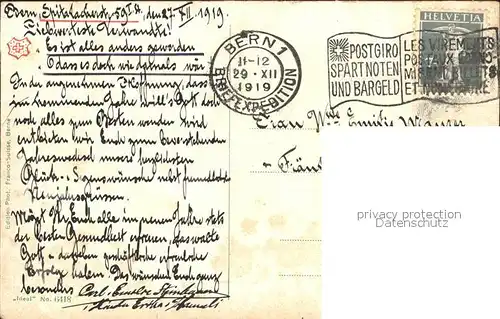 Bern, Spitalackerstr. 59 I. St., den 27. XII 1919.
Liebwerteste Verwandte!
Es ist alles anders geworden
Dass es doch wie damals wär
In der angenehmen Hoffnung, dass
im kommenden Jahre will's Gott doch
noch alles zum Besten werden wird
entbieten wir Euch zum bevorstehenden
Jahreswechsel unsere herzlichsten
Glück- & Segenswünsche nebst freundlichen
Neujahrsgrüssen.
Mögt Ihr Euch alle im neuen Jahre stets
der besten Gesundheit erfreuen, das walte
Gott & daneben geschäftliche erfreuliche
Erfolge haben. Das wünschen Euch ganz
besonders
Carl-Emilie
Kinder Ertha & Hansli
BERN 1
11-12
29·XII
1919
BRIEFEXPEDITION
POSTGIRO
SPART NOTEN
UND BARGELD
LES VIREMENTS
POSTAUX ÉCONO-
MISENT BILLETS
ET NUMÉRAIRE
HELVETIA
Frau Wwe Emilie
Edition Phot. Franco-Suisse, Berne
„Ideal" No. 6418
privacy protection
ansichtskartenversand.com